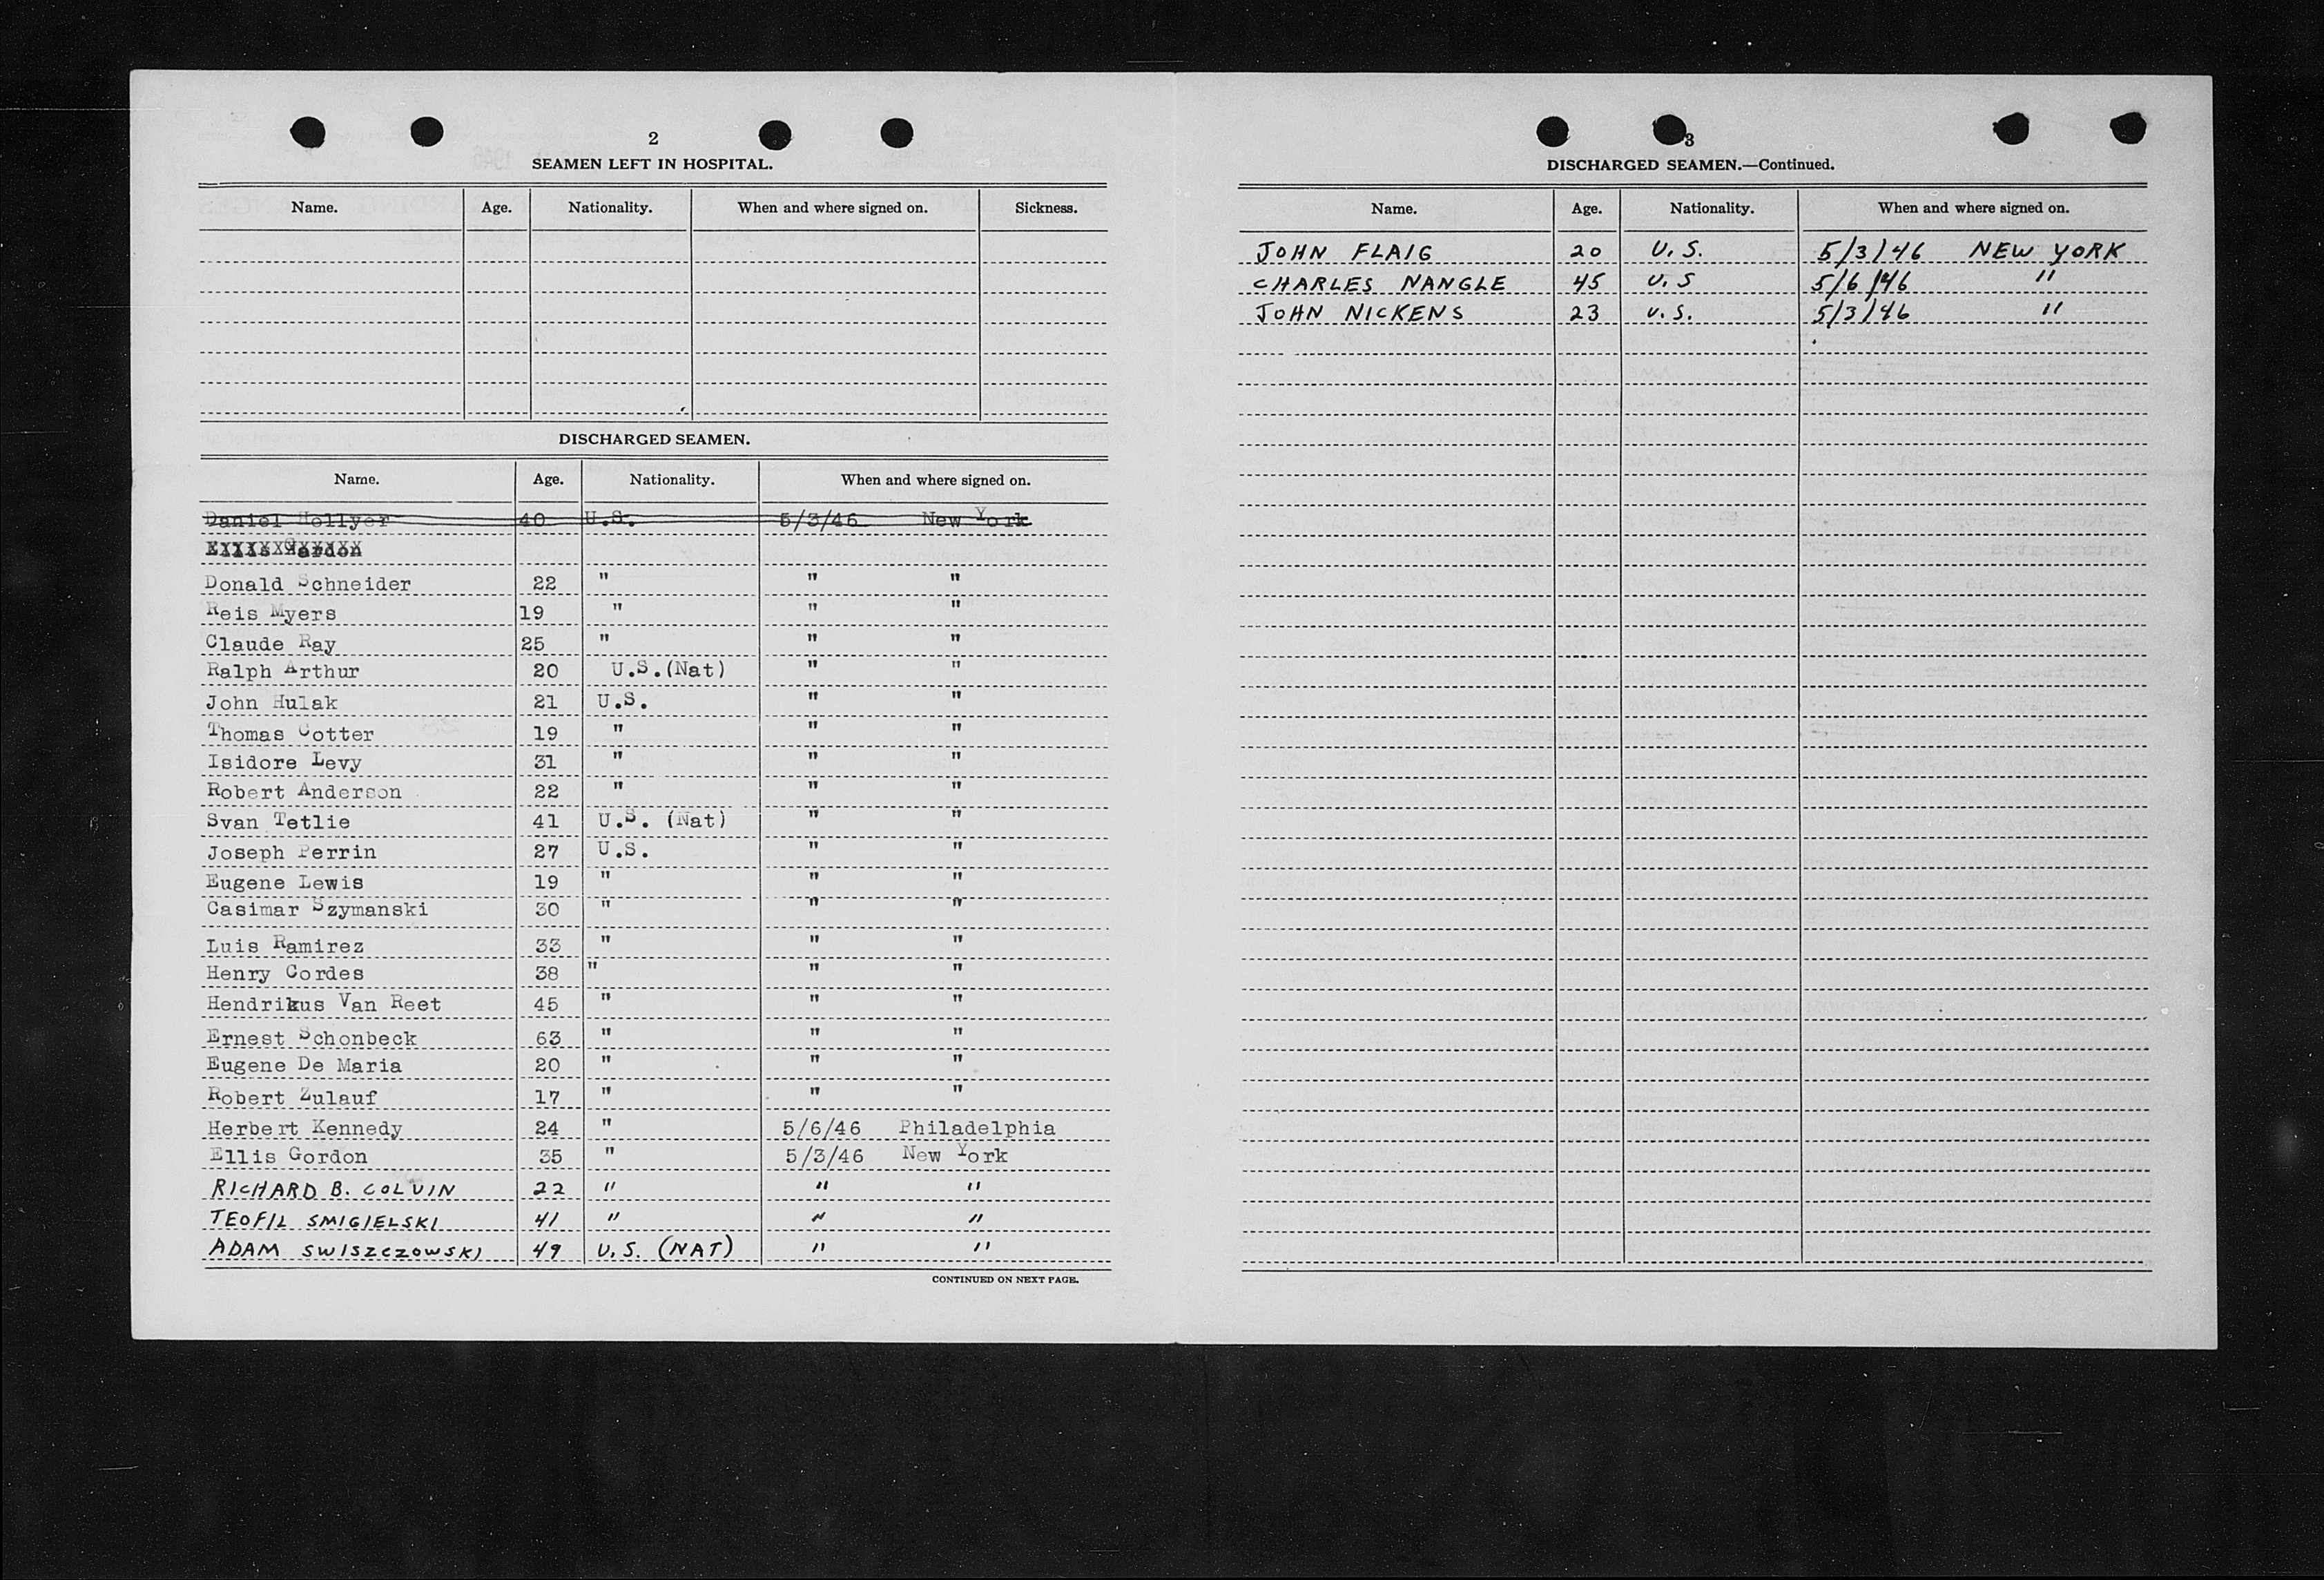 2
SEAMEN LEFT IN HOSPITAL.
Name. Age. Nationality. When and where signed on. Sickness.
DISCHARGED SEAMEN.
Name. Age. Nationality. When and where signed on.
Daniel Hollyer 40 U.S. 5/3/46 New York
Ellis Gordon
Donald Schneider 22 " " "
Reis Myers 19 " " "
Claude Ray 25 " " "
Ralph Arthur 20 U.S.(Nat) " "
John Hulak 21 U.S. " "
Thomas Cotter 19 " " "
Isidore Levy 31 " " "
Robert Anderson 22 " " "
Svan Tetlie 41 U.S. (Nat) " "
Joseph Perrin 27 U.S. " "
Eugene Lewis 19 " " "
Casimar Szymanski 30 " " "
Luis Ramirez 33 " " "
Henry Cordes 38 " " "
Hendrikus Van Reet 45 " " "
Ernest Schonbeck 63 " " "
Eugene De Maria 20 " " "
Robert Zulauf 17 " " "
Herbert Kennedy 24 " 5/6/46 Philadelphia
Ellis Gordon 35 " 5/3/46 New York
RICHARD B. COLVIN 22 " " "
TEOFIL SMIGIELSKI 41 " " "
ADAM SWISZCZOWSKI 49 U.S. (NAT) " "
CONTINUED ON NEXT PAGE.
3
DISCHARGED SEAMEN.—Continued.
Name. Age. Nationality. When and where signed on.
JOHN FLAIG 20 U.S. 5/3/46 NEW YORK
CHARLES NANGLE 45 U.S 5/6/46 "
JOHN NICKENS 23 U.S. 5/3/46 "